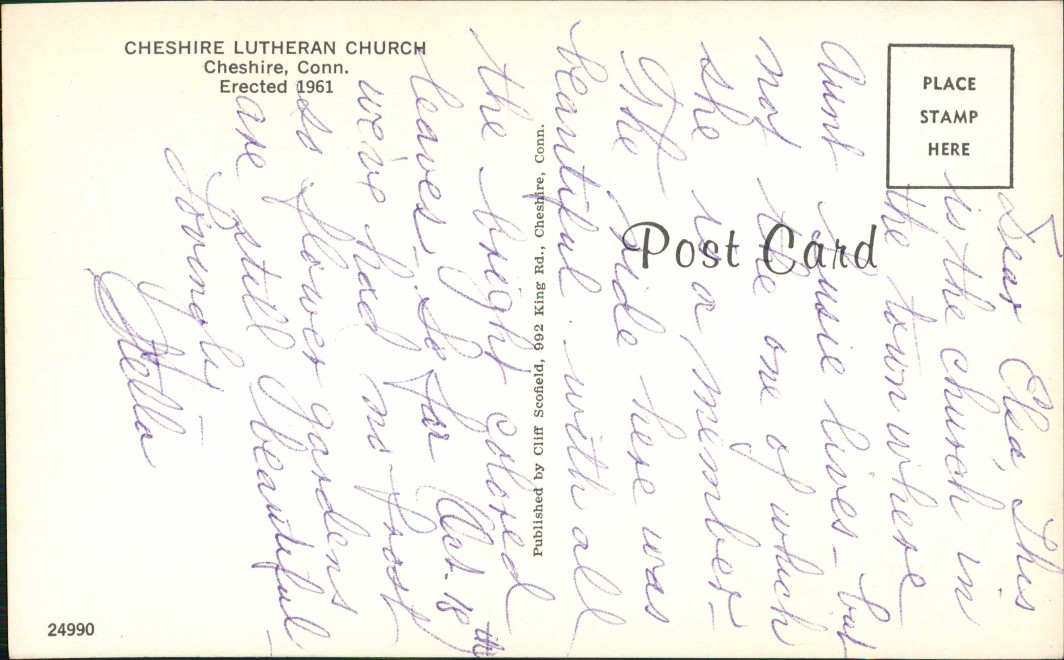 CHESHIRE LUTHERAN CHURCH
Cheshire, Conn.
Erected 1961
PLACE
STAMP
HERE
Post Card
Published by Cliff Scofield, 992 King Rd., Cheshire, Conn.
24990
Dear Elsa, This
is the church in
the town where
Aunt Susie lives - but
not the one of which
she is a member -
The ride here was
beautiful . with all
the bright colored
leaves - So far (Oct. 18th)
we've had no frost
so flower gardens
are still beautiful -
Lovingly -
Stella